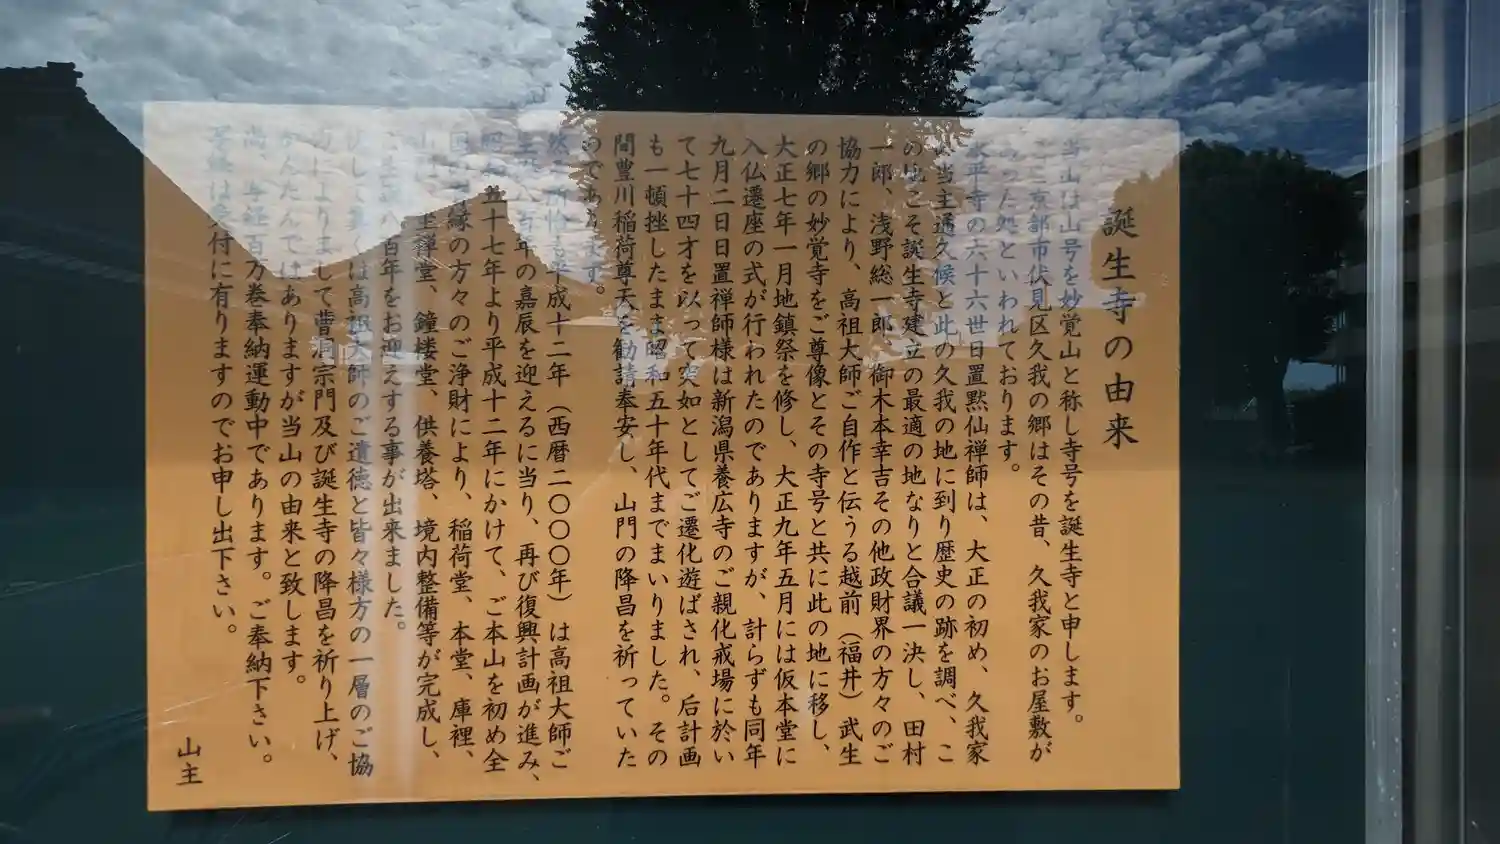 誕生寺の由来
当山は山号を妙覚山と称し寺号を誕生寺と申します。
京都市伏見区久我の郷はその昔、久我家のお屋敷が
った処といわれております。
永平寺の六十六世日置黙仙禅師は、大正の初め、久我家
当主通久候と此の久我の地に到り歴史の跡を調べ、こ
の地こそ誕生寺建立の最適の地なりと合議一決し、田村
一郎、浅野総一郎、御木本幸吉その他政財界の方々のご
協力により、高祖大師ご自作と伝うる越前（福井）武生
の郷の妙覚寺をご尊像とその寺号と共に此の地に移し、
大正七年一月地鎮祭を修し、大正九年五月には仮本堂に
入仏遷座の式が行われたのでありますが、計らずも同年
九月二日日置禅師様は新潟県養広寺のご親化戒場に於い
て七十四才を以って突如としてご遷化遊ばされ、后計画
も一頓挫したまま昭和五十年代までまいりました。その
間豊川稲荷尊天を勧請奉安し、山門の降昌を祈っていた
のであります。
成十二年（西暦二〇〇〇年）は高祖大師ご
生八百年の嘉辰を迎えるに当り、再び復興計画が進み、
五十七年より平成十二年にかけて、ご本山を初め全
縁の方々のご浄財により、稲荷堂、本堂、庫裡、
禅堂、鐘楼堂、供養塔、境内整備等が完成し、
八百年をお迎えする事が出来ました。
は高祖大師のご遺徳と皆々様方の一層のご協
によりまして曹洞宗門及び誕生寺の降昌を祈り上げ、
かんたんではありますが当山の由来と致します。
尚、写経百万巻奉納運動中であります。ご奉納下さい。
付に有りますのでお申し出下さい。
山主